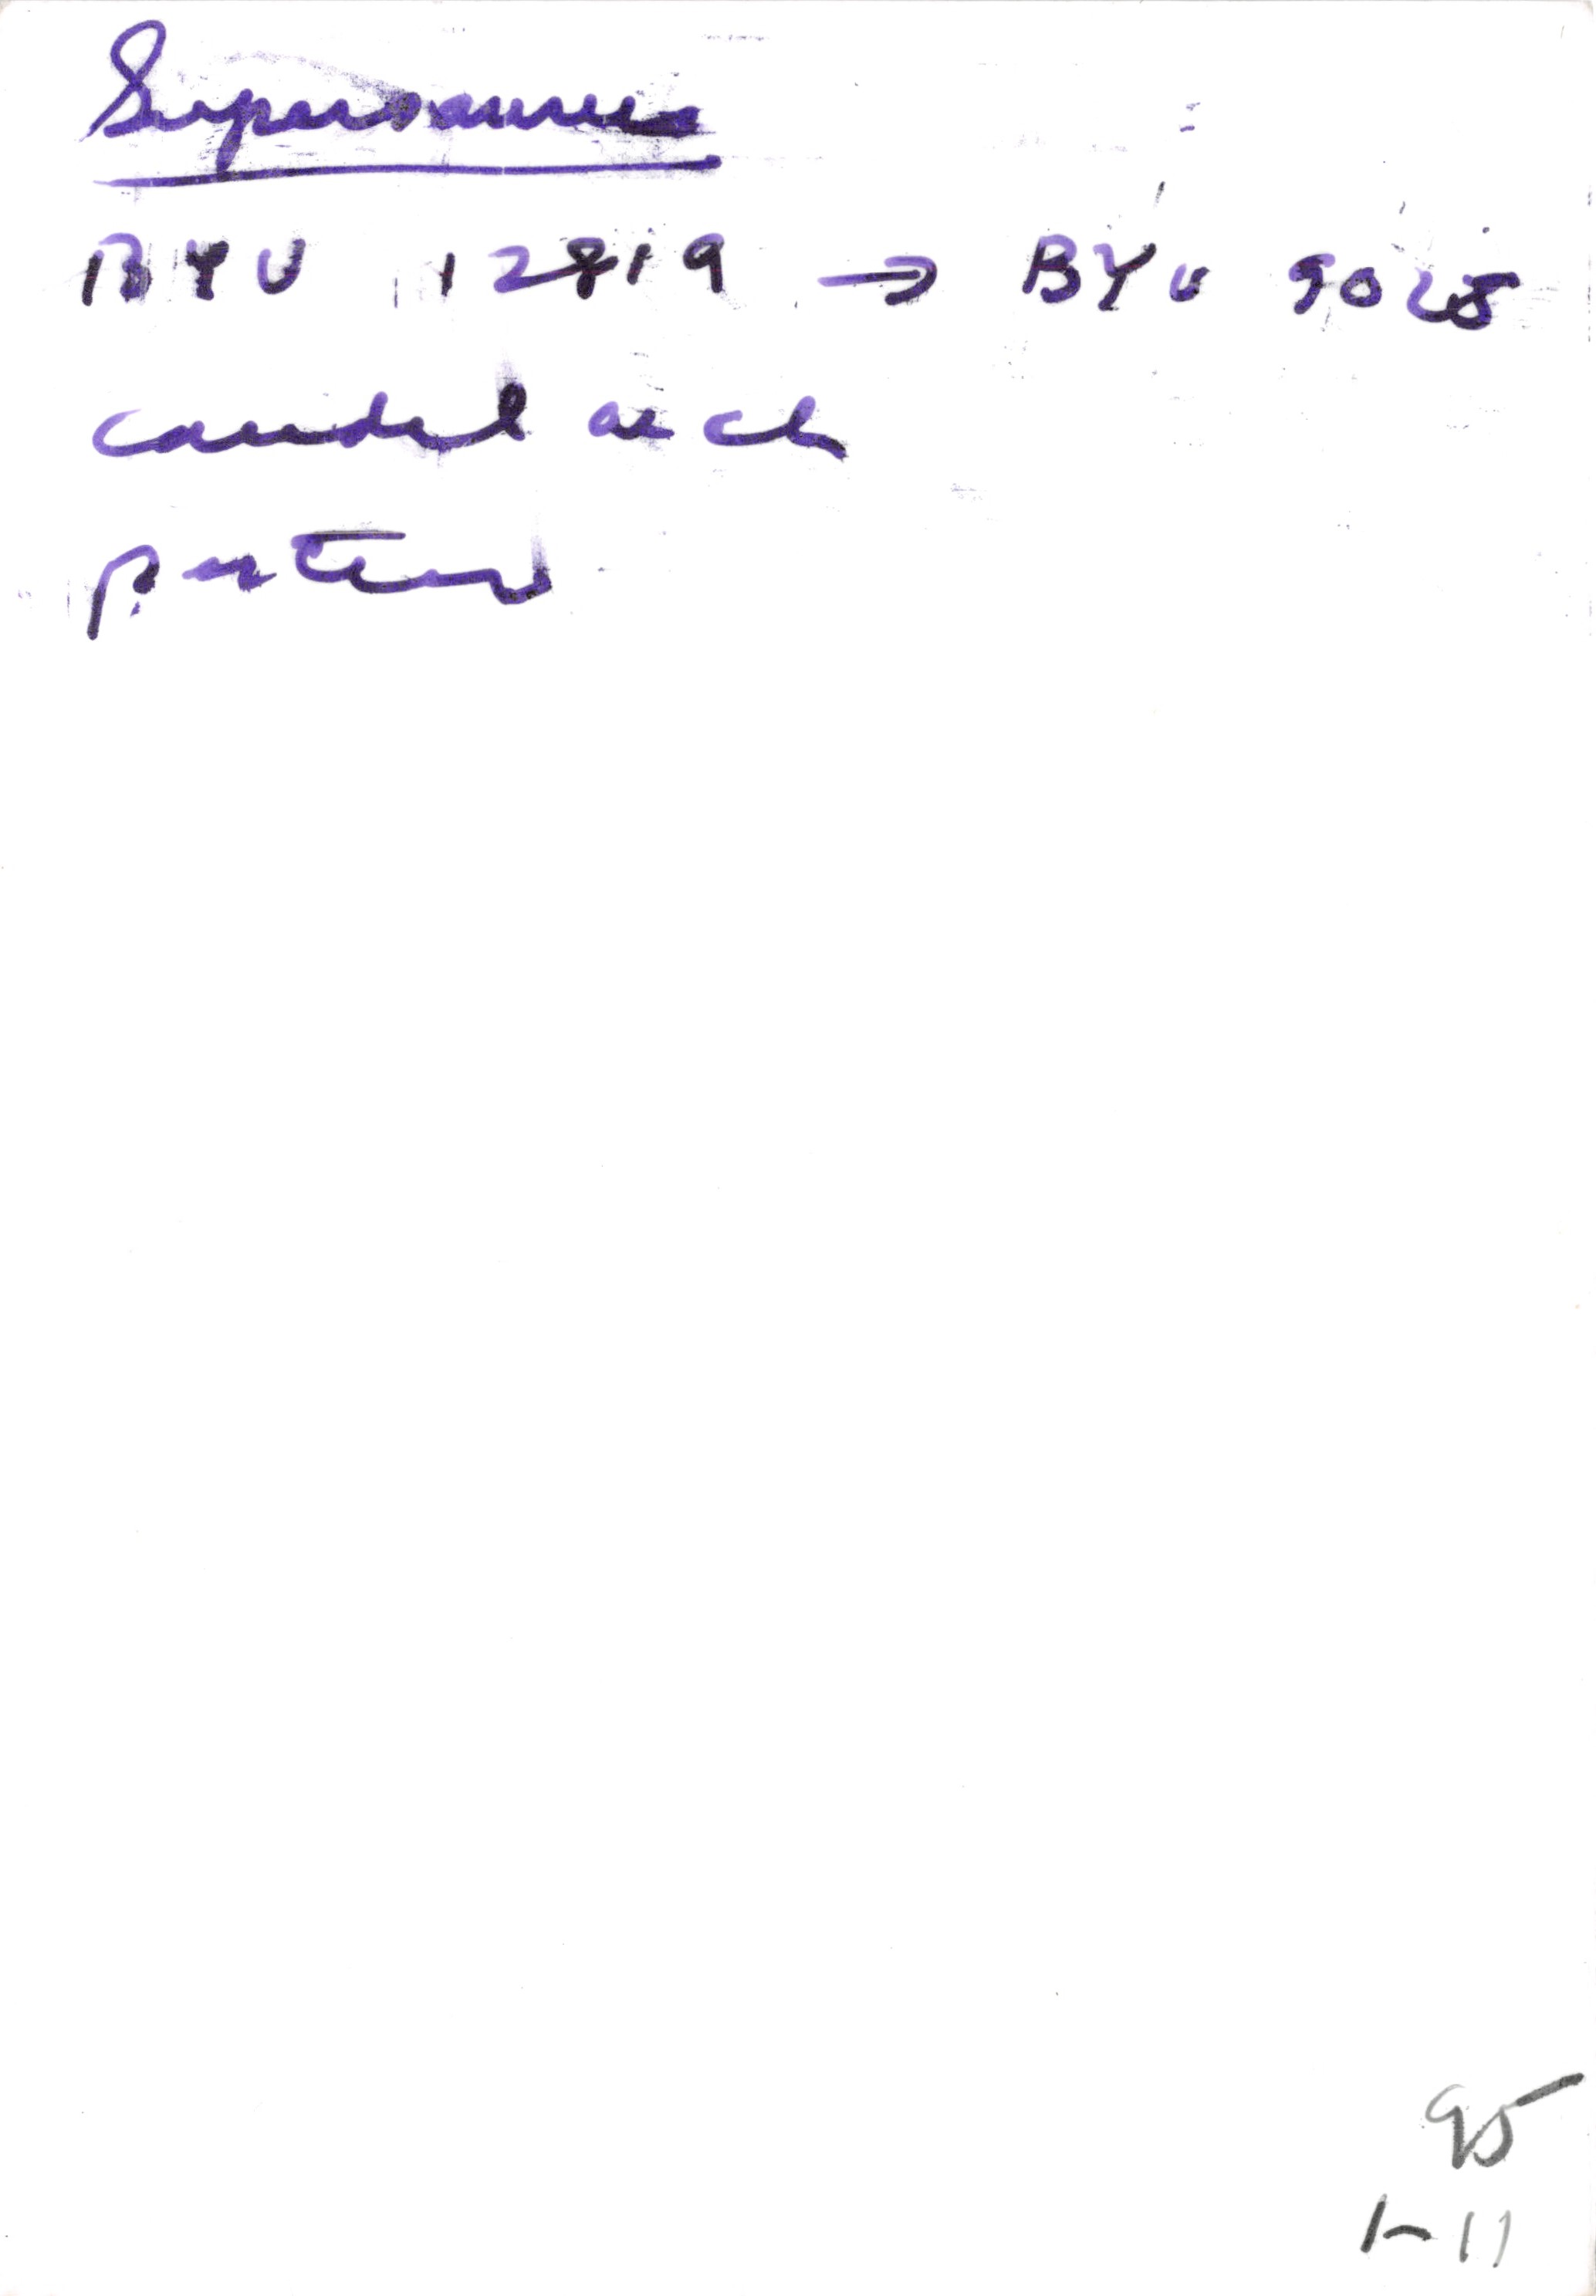 Supersaurus
BYU 12819 → BYU 9025
caudal arch
posterior
95
1-11